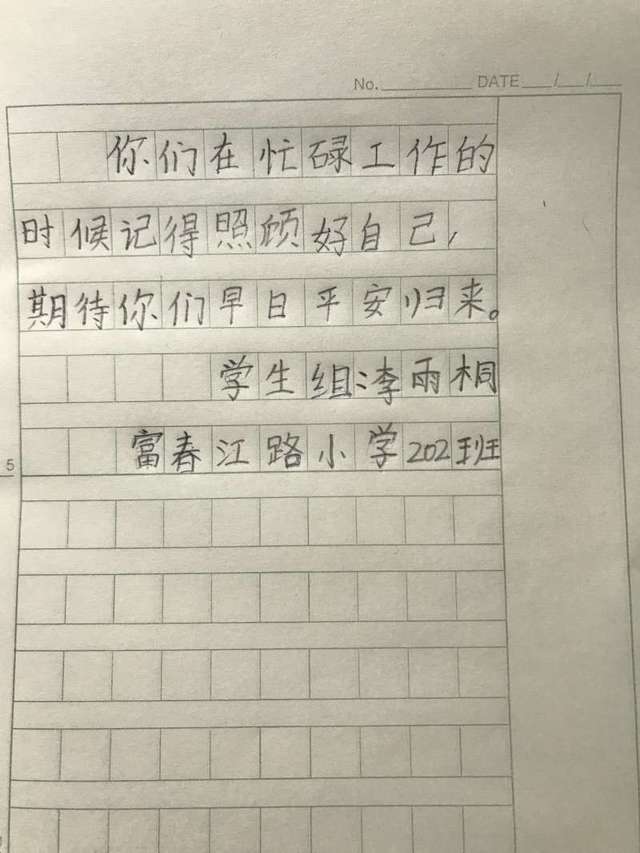 No. DATE / /
你们在忙碌工作的
时候记得照顾好自己,
期待你们早日平安归来。
学生组:李雨桐
富春江路小学202班
5